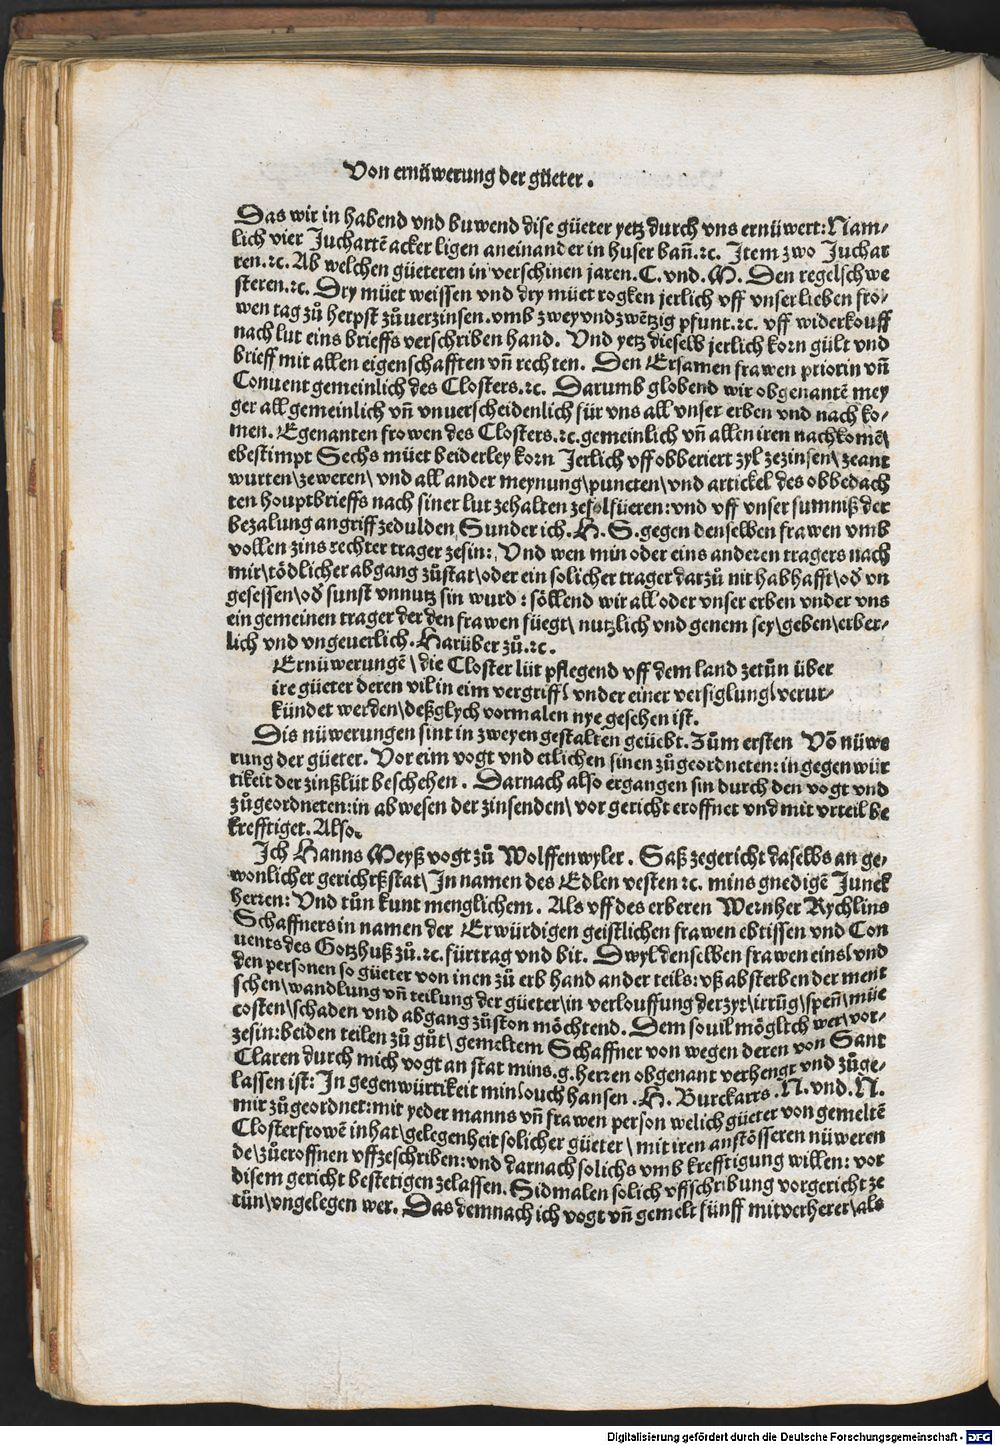 Von ernüwerung der güeter.
Das wir in habend vnd buwend dise güeter yetz durch vns ernüwert: Nam⸗
lich vier Juchartē acker ligen aneinander in huser bañ.⁊c. Item zwo Juchar
ten.⁊c. Ab welchen güeteren in verschinen jaren. C. vnd. M. Den regelschwe
steren.⁊c. Dry müet weissen vnd dry müet rogken jerlich vff vnser lieben fro⸗
wen tag zů herpst zů verzinsen. vmb zwey vnd zwētzig pfunt.⁊c. vff widerkouff
nach lut eins brieffs verschriben hand. Vnd yetz dieselb jerlich korn gült vnd
brieff mit allen eigenschafften vñ rechten. Den Ersamen frawen priorin vñ
Conuent gemeinlich des Closters.⁊c. Darumb globend wir obgenantē mey
ger all gemeinlich vñ vnuerscheidenlich für vns all vnser erben vnd nach ko⸗
men. Egenanten frowen des Closters.⁊c. gemeinlich vñ allen iren nachkomē\
ebestimpt Sechs müet beiderley korn Jerlich vff obberiert zyl zezinsen\ zeant
wurten\ zeweren\ vnd all ander meynung\ puncten\ vnd artickel des obbedach
ten houptbrieffs nach siner lut zehalten ze folfüeren: vnd vff vnser sumniß der
bezalung angriff zedulden Sunder ich. H. S. gegen denselben frawen vmb
vollen zins rechter trager zesin: Vnd wen min oder eins anderen tragers nach
mir\ tödlicher abgang zůstat\ oder ein solicher trager darzů nit habhafft\ od̕ vn
gesessen\ od̕ sunst vnnutz sin wurd: söllend wir all oder vnser erben vnder vns
ein gemeinen trager der den frawen füegt\ nutzlich vnd genem sey\ geben\ erber⸗
lich vnd vngeuerlich. Harüber zů.⁊c.
Ernüwerungē\ die Closter lüt pflegend vff dem land zetůn über
ire güeter deren vil in eim vergriff\ vnder einer versiglung\ verur⸗
kündet werden\ deßglych vormalen nye gesehen ist.
Dis nüwerungen sint in zweyen gestalten geüebt. Zům ersten Vō nüwe
rung der güeter. Vor eim vogt vnd etlichen sinen zůgeordneten: in gegenwür
tikeit der zinßlüt beschehen. Darnach also ergangen sin durch den vogt vnd
zůgeordneten: in abwesen der zinsenden\ vor gericht eroffnet vnd mit vrteil be
krefftiget. Also.
Ich Hanns Meyß vogt zů Wolffenwyler. Saß zegericht daselbs an ge⸗
wonlicher gerichrßstat\ In namen des Edlen vesten ⁊c. mins gnedigē Junck
herren: Vnd tůn kunt menglichem. Als vff des erberen Wernher Rychlins
Schaffners in namen der Erwürdigen geistlichen frawen ebtissen vnd Con
uents des Gotzhuß zů.⁊c. fürtrag vnd bit. Dwyl denselben frawen eins\ vnd
den personen so güeter von inen zů erb hand ander teils: vß absterben der men
schen\ wandlung vñ teilung der güeter\ in verlouffung der zyt\ irrūg\ speñ\ müe
costen\ schaden vnd abgang zůston möchtend. Dem souil möglich wer\ vor⸗
zesin: beiden teilen zů gůt\ gemeltem Schaffner von wegen deren von Sant
Claren durch mich vogt an stat mins. g. herren obgenant verhengt vnd zůge⸗
lassen ist: In gegenwürtikeit min\ ouch hansen. H. Burckarts. N. vnd. N.
mir zůgeordnet: mit yeder manns vñ frawen person welich güeter von gemeltē
Closterfrowē inhat\ gelegenheit solicher güeter\ mit iren anstösseren nüweren
de\ zůeroffnen vffzeschriben: vnd darnach solichs vmb krefftigung willen: vor
disem gericht bestetigen zelassen. Sidmalen solich vffschribung vorgericht ze
tůn\ vngelegen wer. Das demnach ich vogt vñ gemelt fünff mitverherer\ als
Digitalisierung gefördert durch die Deutsche Forschungsgemeinschaft - DFG